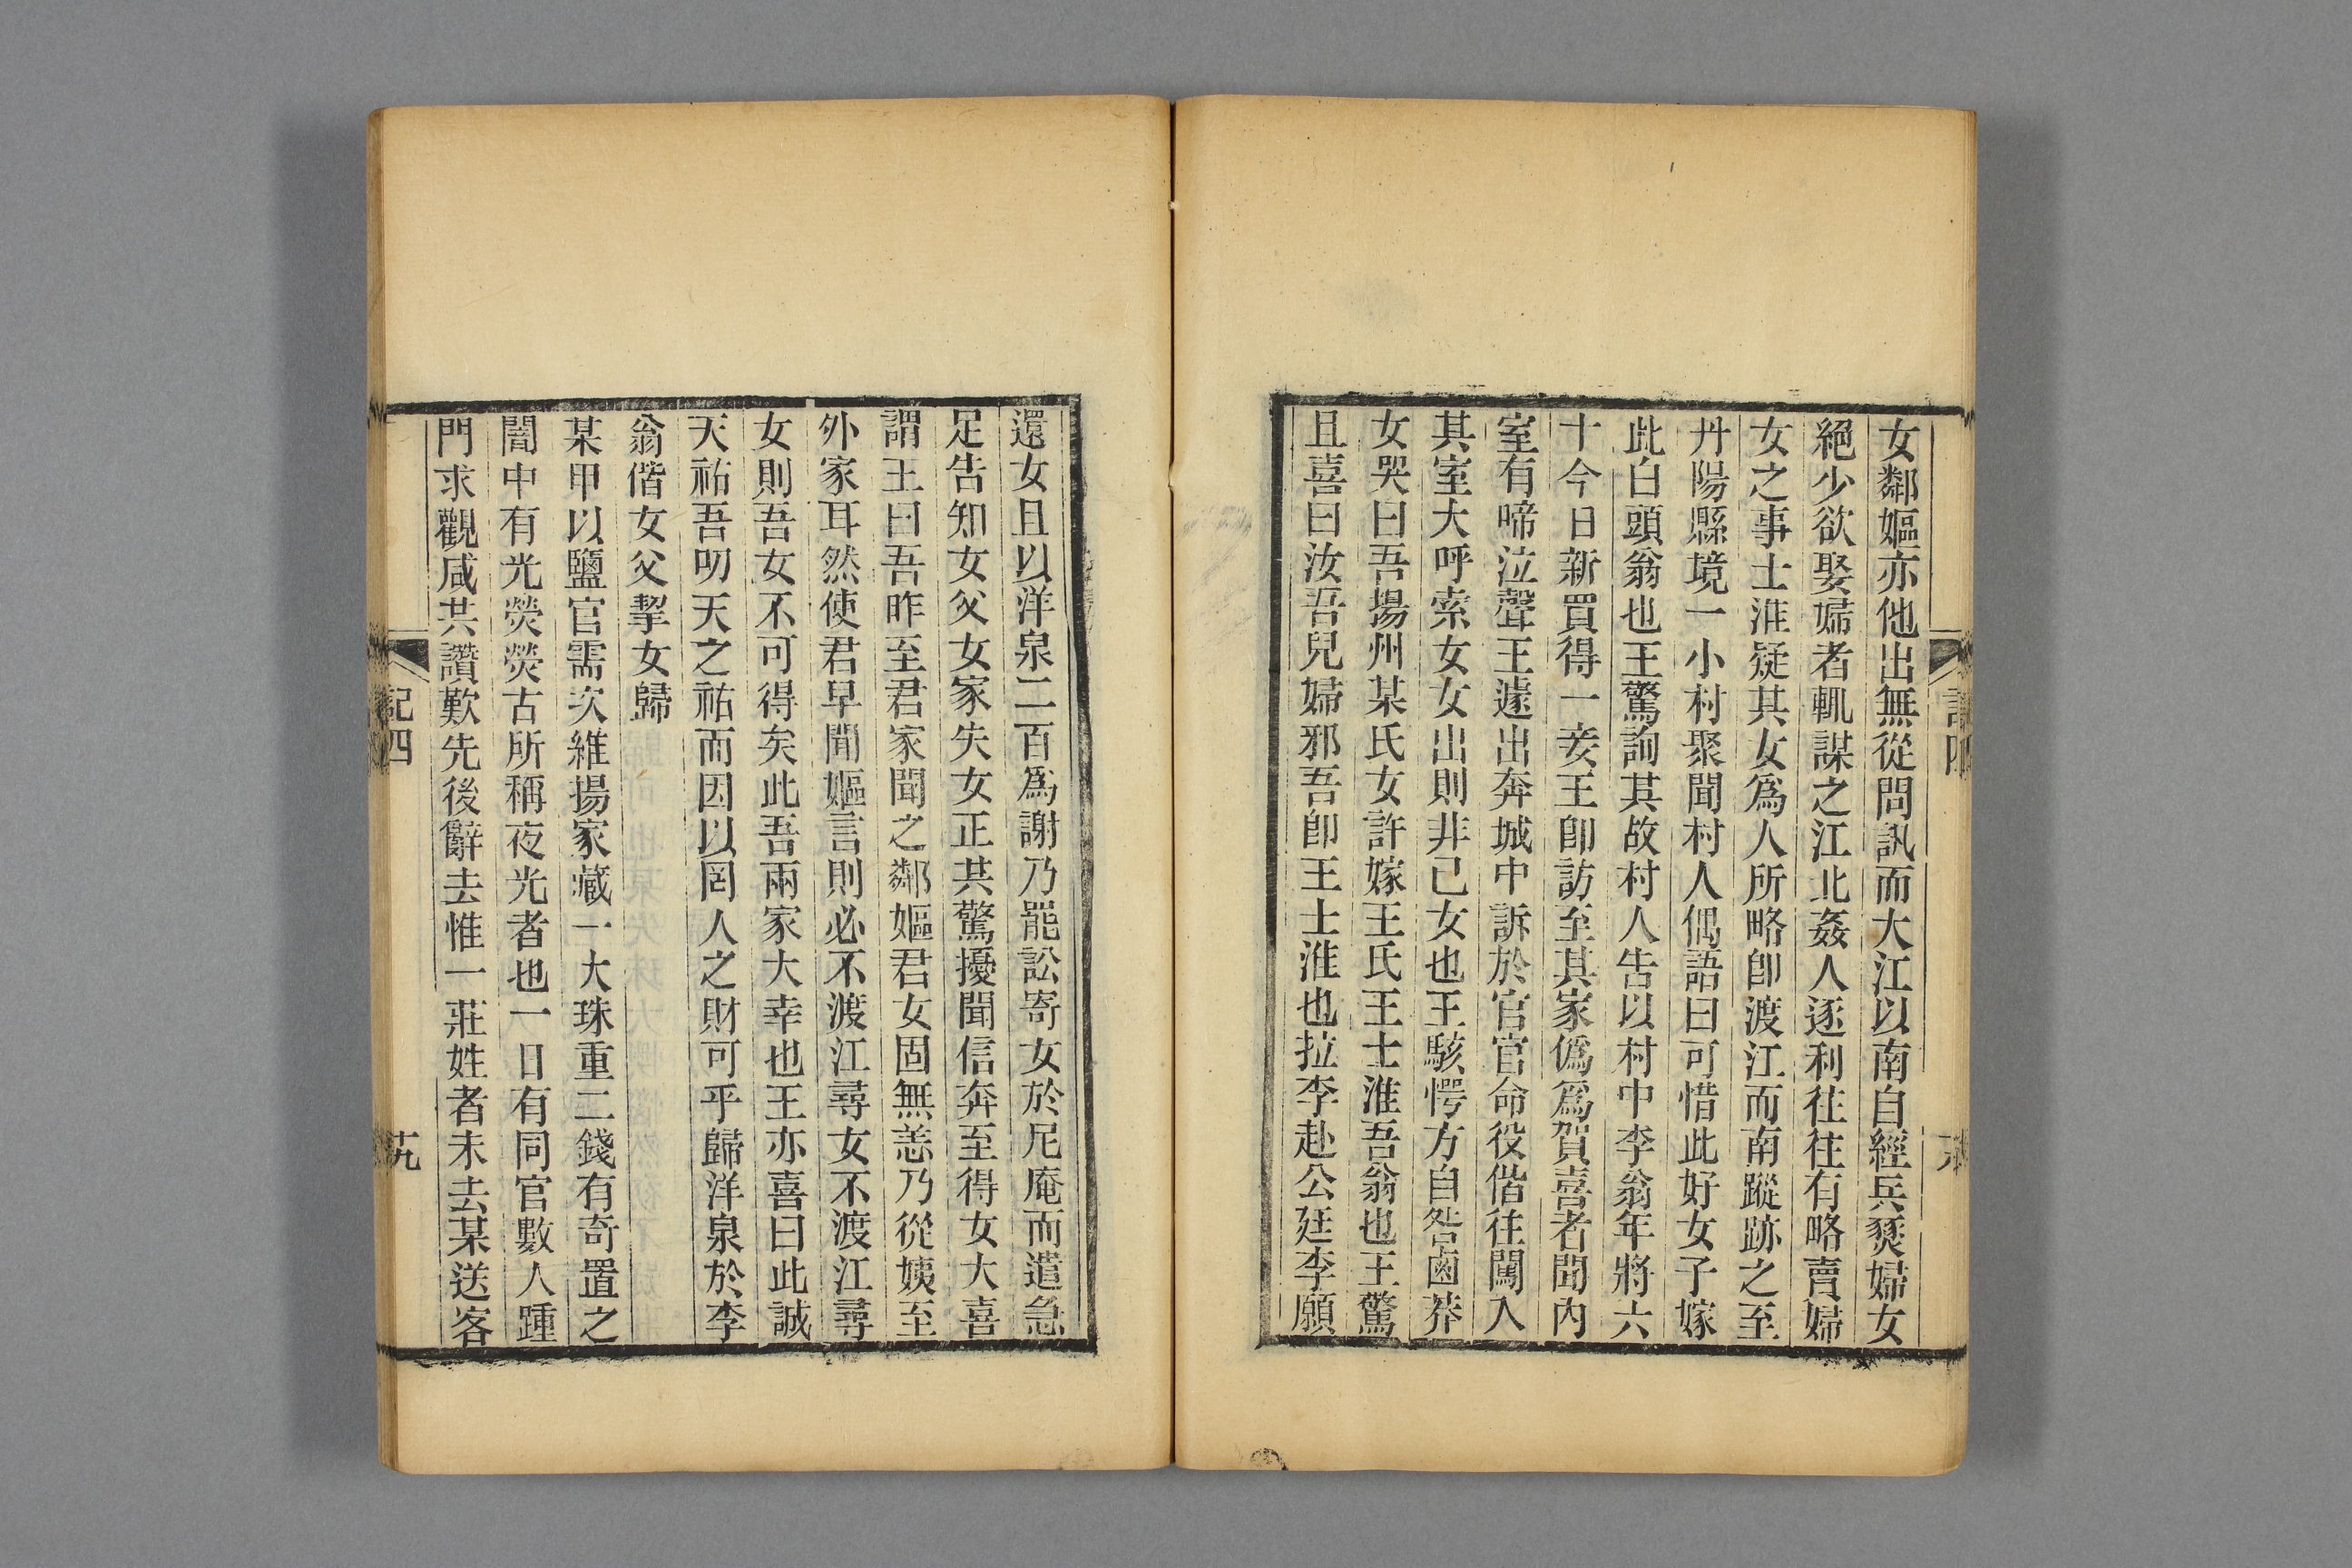 女鄰嫗亦他出無從問訊而大江以南自經兵燹婦女
絕少欲娶婦者輒謀之江北姦人逐利往往有略賣婦
女之事士淮疑其女爲人所略卽渡江而南蹤跡之至
丹陽縣境一小村聚聞村人偶語曰可惜此好女子嫁
此白頭翁也王驚詢其故村人吿以村中李翁年將六
十今日新買得一妾王卽訪至其家僞爲賀喜者聞內
室有啼泣聲王遽出奔城中訴於官官命役偕往闖入
其室大呼索女女出則非己女也王駭愕方自咎鹵莽
女哭曰吾揚州某氏女許嫁王氏王士淮吾翁也王驚
且喜曰汝吾兒婦邪吾卽王士淮也拉李赴公廷李願
還女且以洋泉二百爲謝乃罷訟寄女於尼庵而遣急
足告知女父女家失女正共驚擾聞信奔至得女大喜
謂王曰吾昨至君家聞之鄰嫗君女固無恙乃從姨至
外家耳然使君早聞嫗言則必不渡江尋女不渡江尋
女則吾女不可得矣此吾兩家大幸也王亦喜曰此誠
天祐吾叨天之祐而因以罔人之財可乎歸洋泉於李
翁偕女父挈女歸
某甲以鹽官需次維揚家藏一大珠重二錢有奇置之
闇中有光熒熒古所稱夜光者也一日有同官數人踵
門求觀咸共讚歎先後辭去惟一莊姓者未去某送客
記四